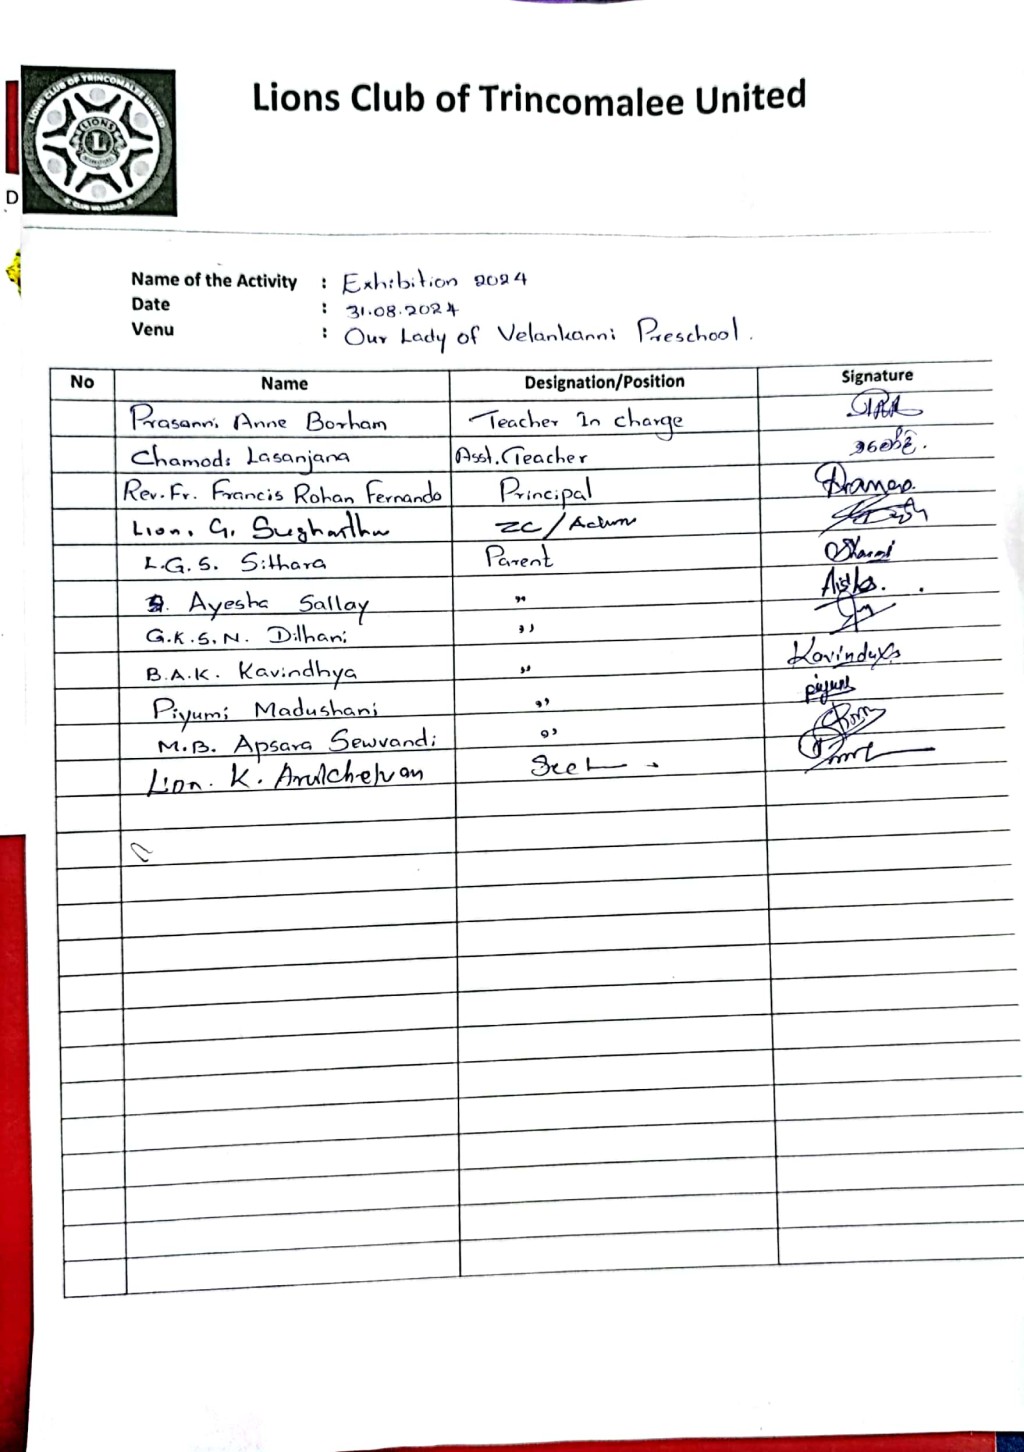 LIONS CLUB OF TRINCOMALEE UNITED
LIONS
L
D
Lions Club of Trincomalee United
Name of the Activity : Exhibition 2024
Date : 31.08.2024
Venu : Our Lady of Velankanni Preschool.
No Name Designation/Position Signature
Prasanni Anne Borham Teacher In charge
Chamodi Lasanjana Asst. Teacher
Rev. Fr. Francis Rohan Fernando Principal
Lion. G. ZC/
L.G.S. Sithara Parent
Ayesha Sallay "
G.K.S.N. Dilhani "
B.A.K. Kavindhya " Kavindya
Piyumi Madushani " piyumi
M.B. Apsara Sewvandi "
Lion. K. Arulchelvan